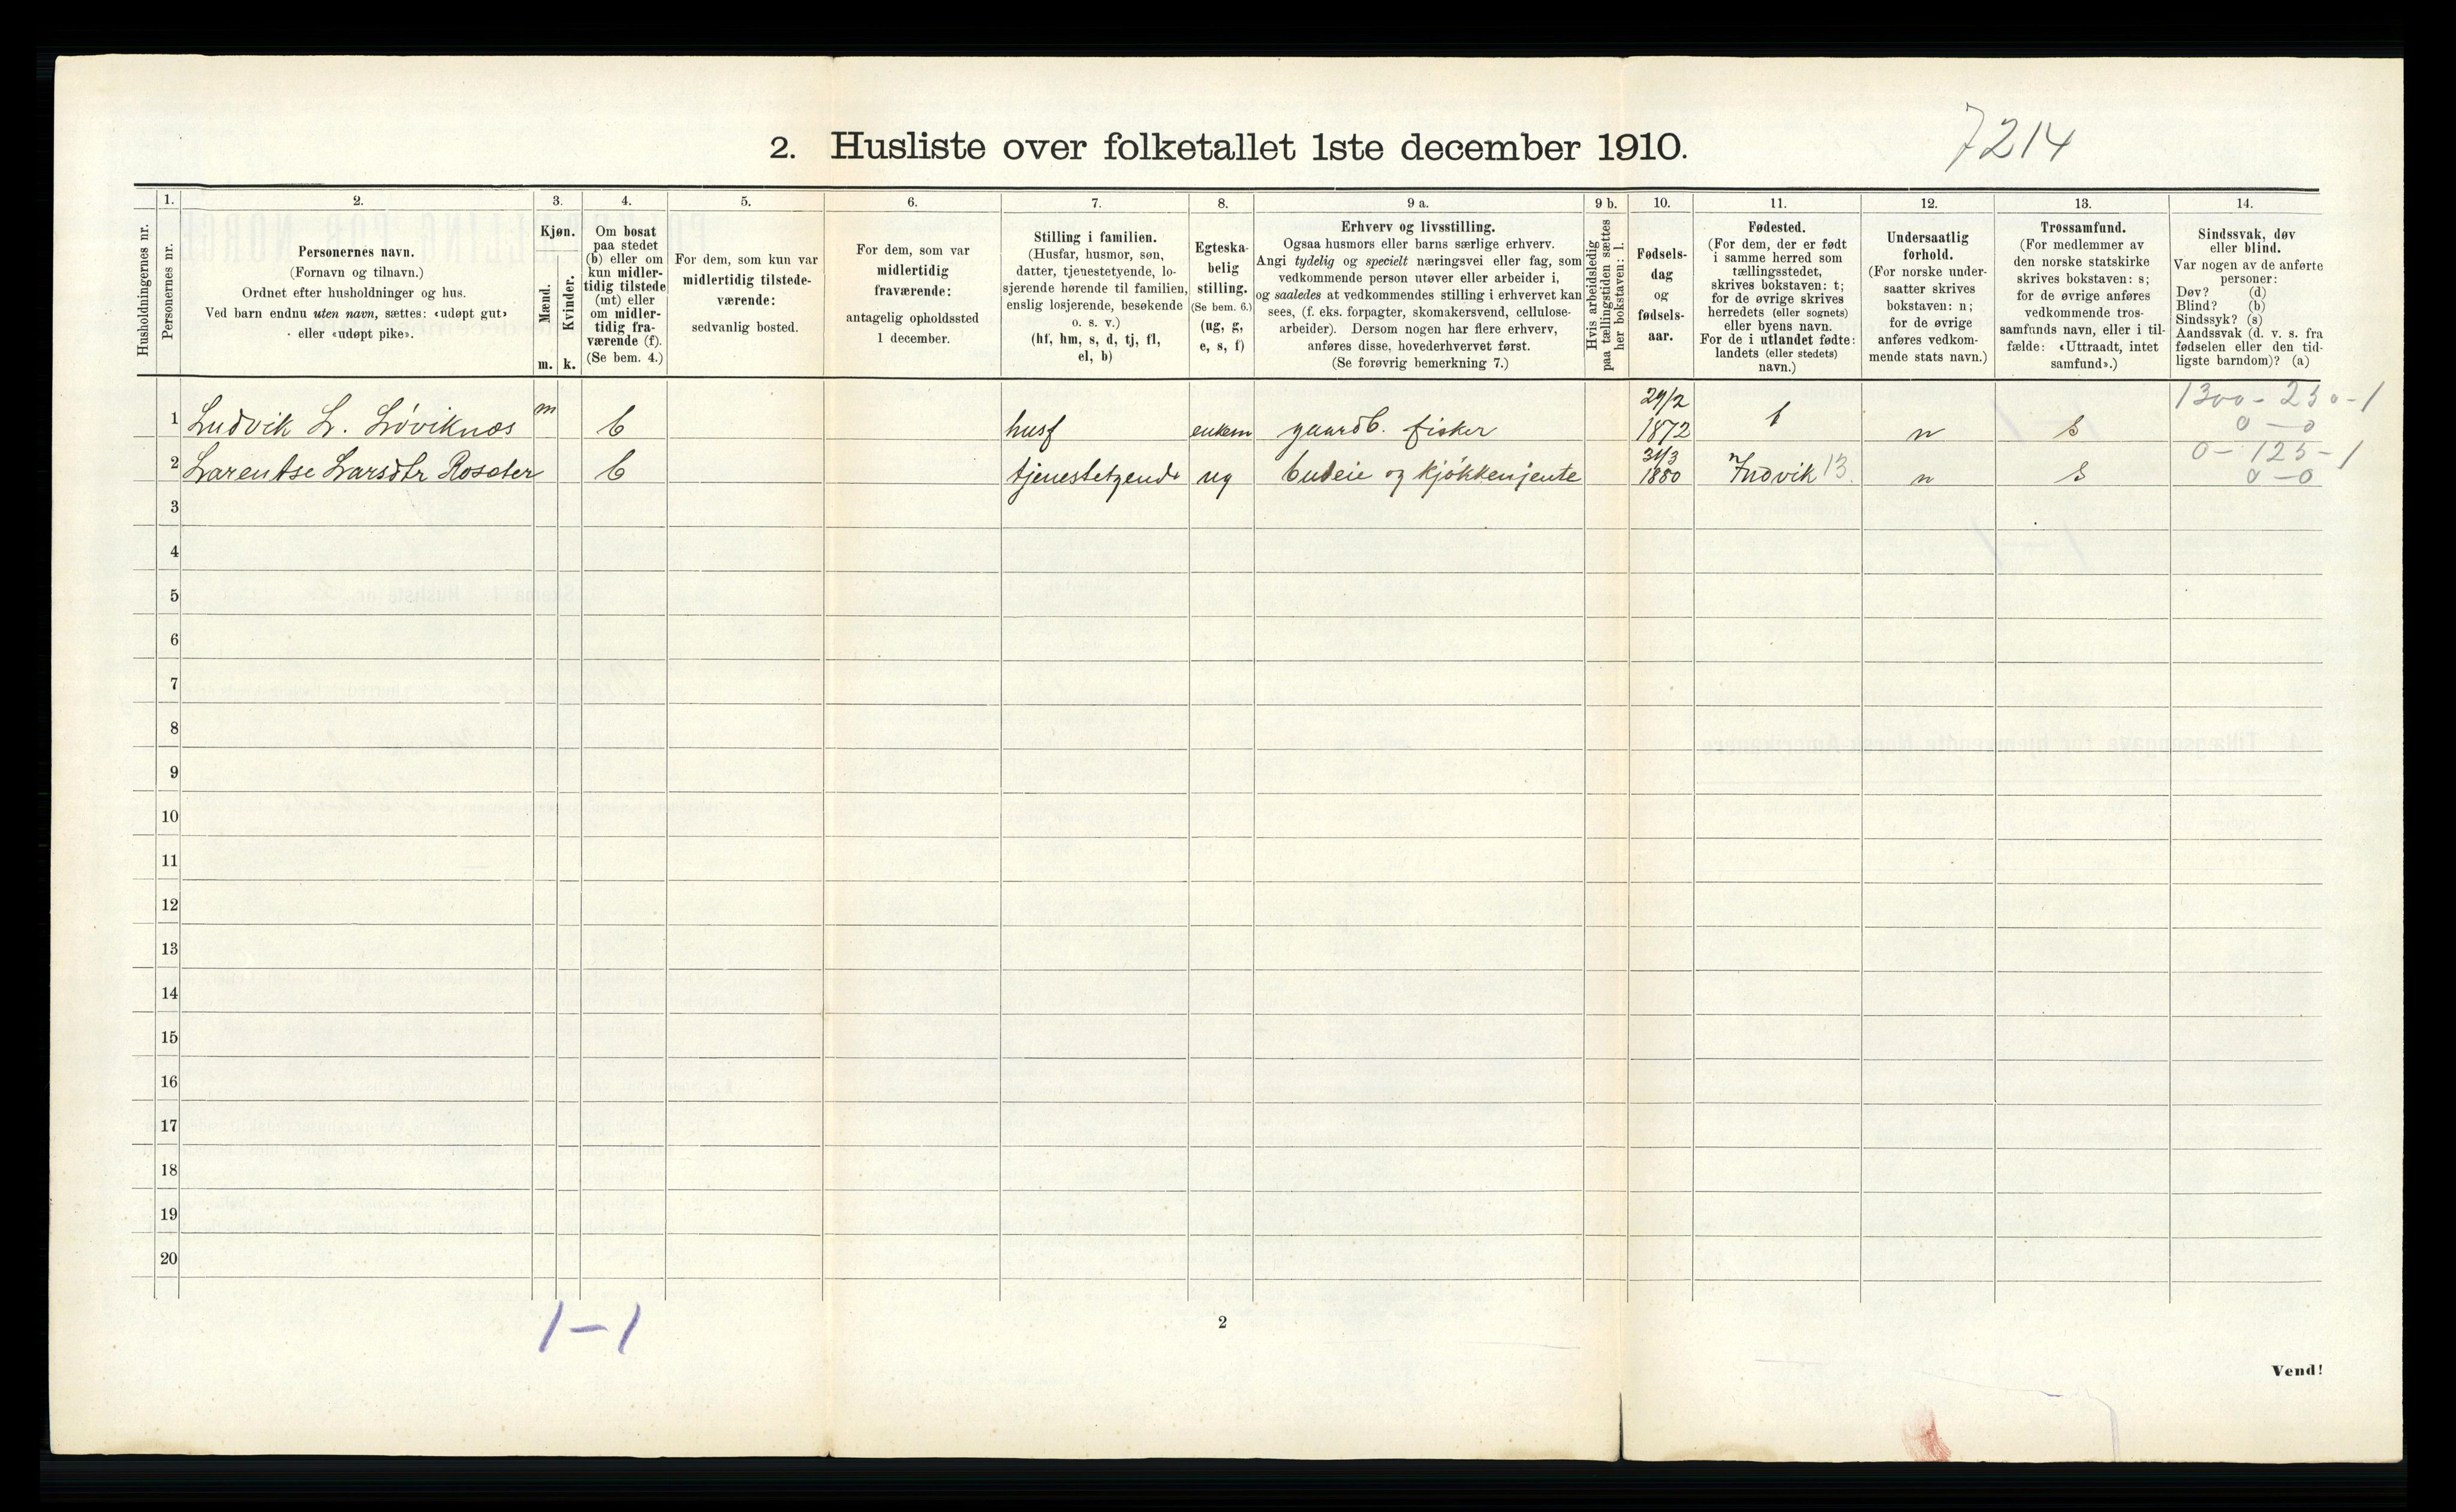 7214
2. Husliste over folketallet 1ste december 1910.
Husholdningernes nr.
1.
Personernes nr.
2.
Personernes navn.
(Fornavn og tilnavn.)
Ordnet efter husholdninger og hus.
Ved barn endnu uten navn, sættes: «udøpt gut»
eller «udøpt pike».
3.
Kjøn.
Mænd.
Kvinder.
m. k.
4.
Om bosat
paa stedet
(b) eller om
kun midler-
tidig tilstede
(mt) eller
om midler-
tidig fra-
værende (f).
(Se bem. 4.)
5.
For dem, som kun var
midlertidig tilstede-
værende:
sedvanlig bosted.
6.
For dem, som var
midlertidig
fraværende:
antagelig opholdssted
1 december.
7.
Stilling i familien.
(Husfar, husmor, søn,
datter, tjenestetyende, lo-
sjerende hørende til familien,
enslig losjerende, besøkende
o. s. v.)
(hf, hm, s, d, tj, fl,
el, b)
8.
Egteska-
belig
stilling.
(Se bem. 6.)
(ug, g,
e, s, f)
9 a.
Erhverv og livsstilling.
Ogsaa husmors eller barns særlige erhverv.
Angi tydelig og specielt næringsvei eller fag, som
vedkommende person utøver eller arbeider i,
og saaledes at vedkommendes stilling i erhvervet kan
sees, (f. eks. forpagter, skomakersvend, cellulose-
arbeider). Dersom nogen har flere erhverv,
anføres disse, hovederhvervet først.
(Se forøvrig bemerkning 7.)
9 b.
Hvis arbeidsledig
paa tællingstiden sættes
her bokstaven: l.
10.
Fødsels-
dag
og
fødsels-
aar.
11.
Fødested.
(For dem, der er født
i samme herred som
tællingsstedet,
skrives bokstaven: t;
for de øvrige skrives
herredets (eller sognets)
eller byens navn.
For de i utlandet fødte:
landets (eller stedets)
navn.)
12.
Undersaatlig
forhold.
(For norske under-
saatter skrives
bokstaven: n;
for de øvrige
anføres vedkom-
mende stats navn.)
13.
Trossamfund.
(For medlemmer av
den norske statskirke
skrives bokstaven: s;
for de øvrige anføres
vedkommende tros-
samfunds navn, eller i til-
fælde: «Uttraadt, intet
samfund».)
14.
Sindssvak, døv
eller blind.
Var nogen av de anførte
personer:
Døv? (d)
Blind? (b)
Sindssyk? (s)
Aandssvak (d. v. s. fra
fødselen eller den tid-
ligste barndom)? (a)
1 Ludvik L. Løviknes m b husf enkem gaardb. fisker 29/2 1872 t n s 1300-250-1
0-0
2 Larentse Larsdtr Roseter b tjenestetyende ug budeie og kjøkkenjente 31/3 1880 Indvik 13 n s 0-125-1
0-0
3
4
5
6
7
8
9
10
11
12
13
14
15
16
17
18
19
20
1-1
2
Vend!